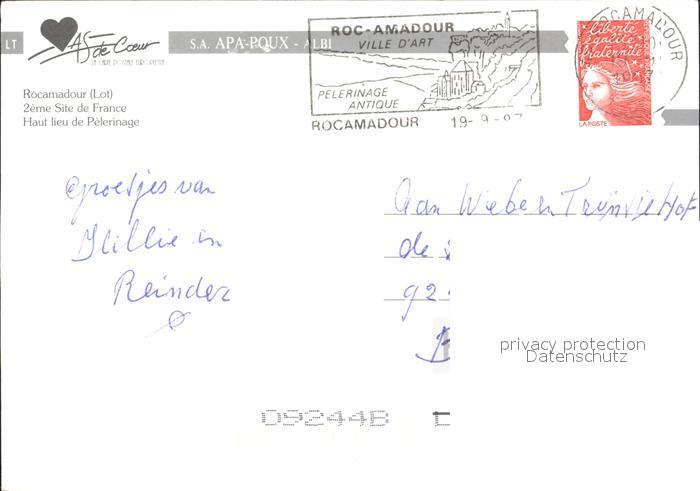 LT
AS de Cœur
LA CARTE POSTALE EUROPEENNE
S.A. APA-POUX - ALBI
Rocamadour (Lot)
2ème Site de France
Haut lieu de Pèlerinage
ROC-AMADOUR
VILLE D'ART
PELERINAGE
ANTIQUE
ROCAMADOUR 19-9-97
ROCAMADOUR
liberté
égalité
fraternité
LA POSTE
Groetjes van
Hillie en
Reinder
Aan Wiebe en Trijntje Hof
de
92
privacy protection
Datenschutz
D9244B